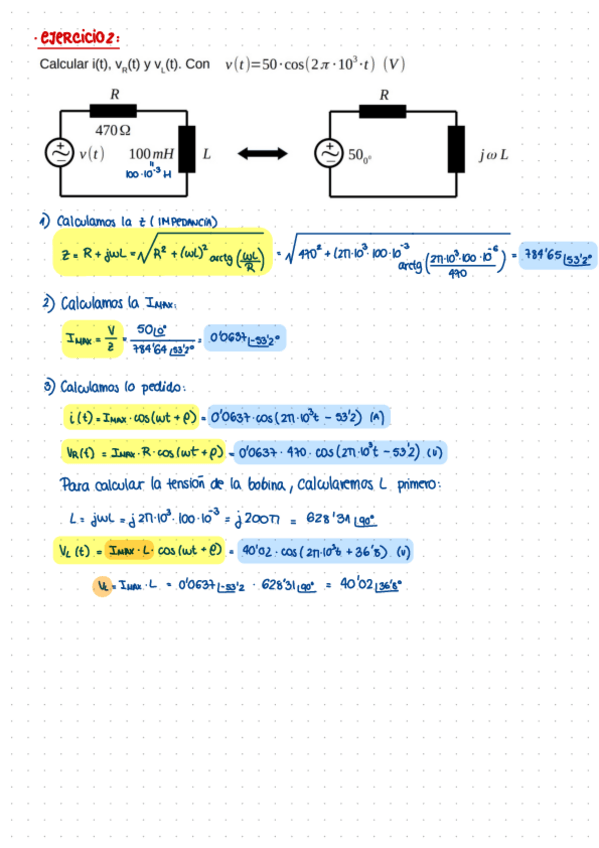 · EJERCICIO 2:
Calcular i(t), v_R(t) y v_L(t). Con v(t)=50·cos(2π·10³·t) (V)
R
R
470Ω
v(t) 100mH L
50₀° jωL
100·10⁻³ H
1) Calculamos la Z (IMPEDANCIA)
Z = R + jωL = √R² + (ωL)² arctg (ωL/R) = √470² + (2π·10³·100·10⁻³ arctg (2π·10³·100·10⁻⁶/470) = 784'65∠53'2°
2) Calculamos la IMAX:
IMAX = V/Z = 50∠0°/784'64∠53'2° = 0'0637∠-53'2°
3) Calculamos lo pedido:
i(t) = IMAX·cos(ωt + φ) = 0'0637·cos(2π·10³t - 53'2) (A)
VR(t) = IMAX·R·cos(ωt + φ) = 0'0637·470·cos(2π·10³t - 53'2) (V)
Para calcular la tensión de la bobina, calcularemos L primero:
L = jωL = j2π·10³·100·10⁻³ = j200π = 628'31∠90°
VL(t) = IMAX·L·cos(ωt + φ) = 40'02·cos(2π·10³t + 36'8) (V)
VL = IMAX·L = 0'0637∠-53'2·628'31∠90° = 40'02∠36'8°